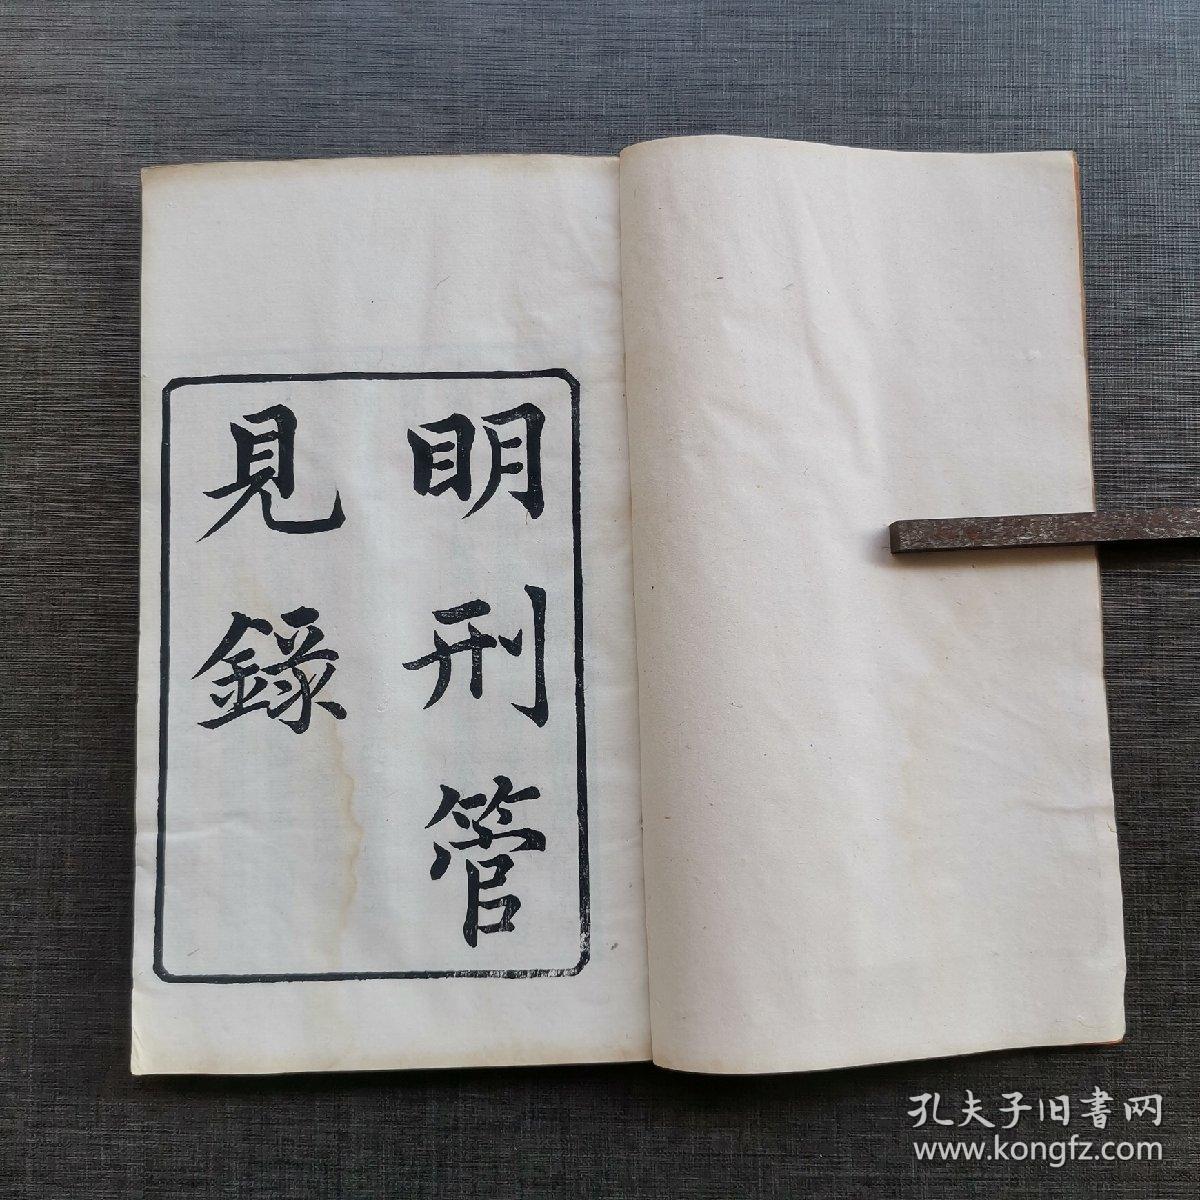 明刑管
見錄
孔夫子旧書网
www.kongfz.com